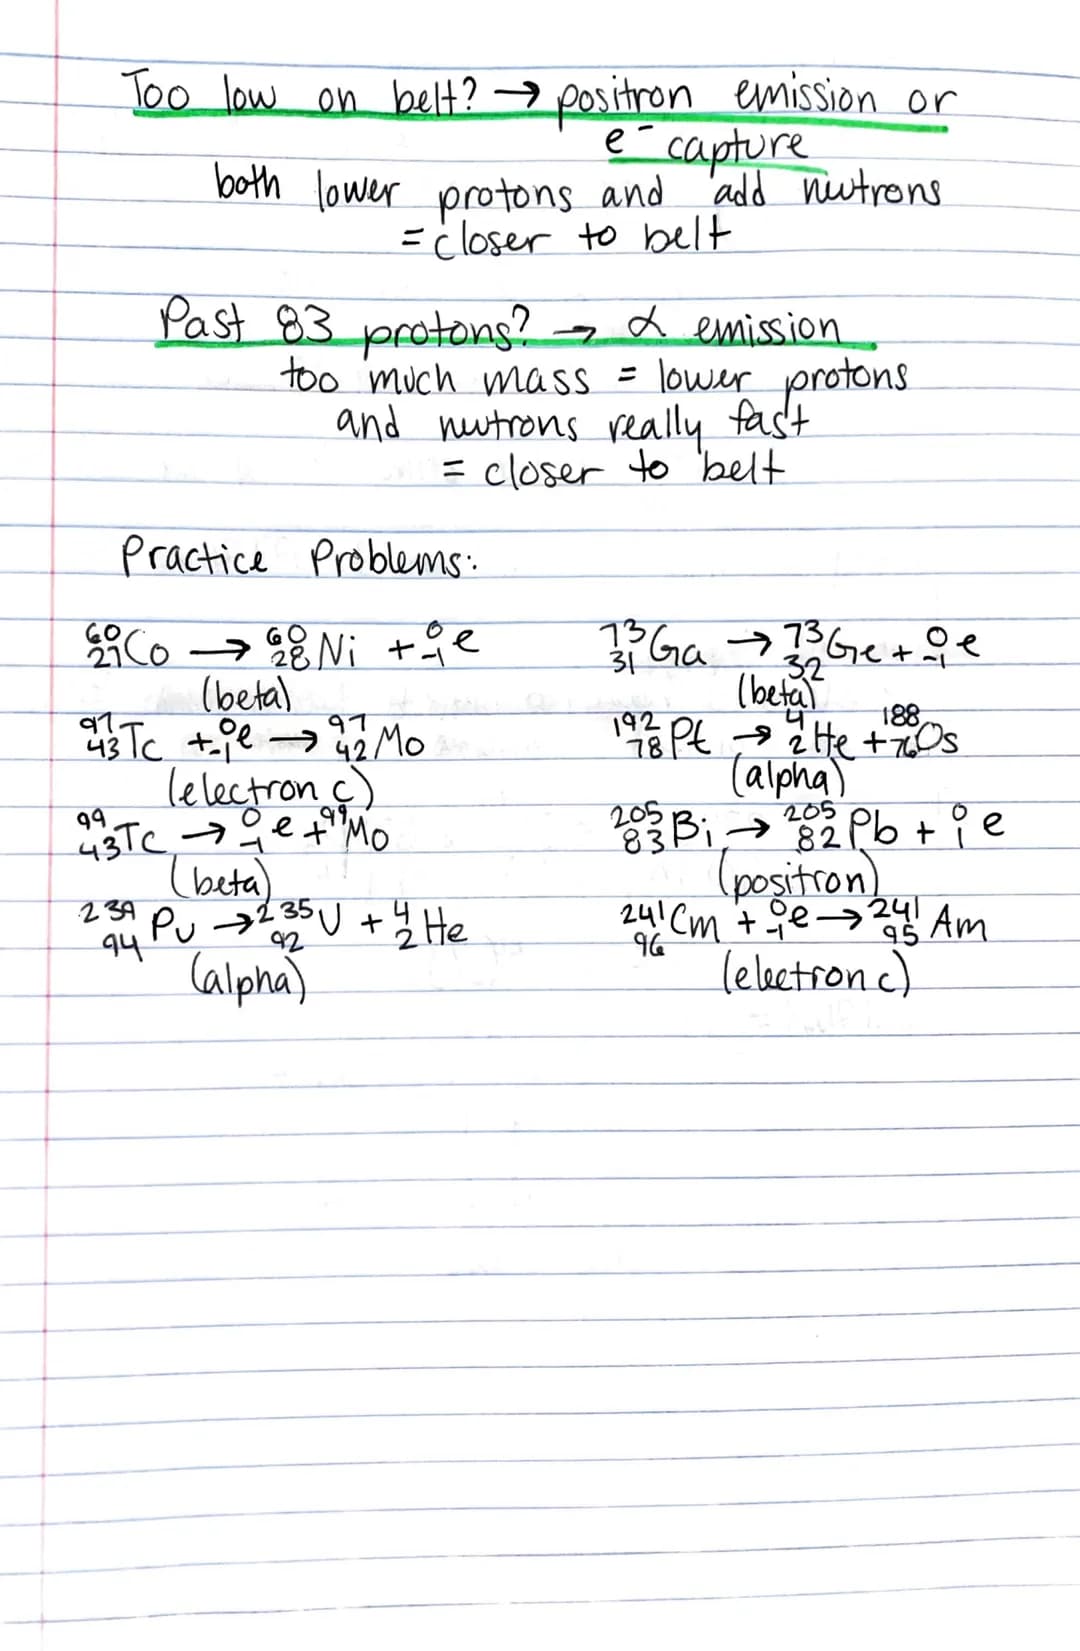 Too low on belt? → positron emission or
e⁻ capture
both lower protons and add nutrons
= closer to belt
Past 83 protons? → α emission
too much mass = lower protons
and nutrons really fast
= closer to belt
Practice Problems:
⁶⁰₂₇Co → ⁶⁰₂₈Ni + ⁰₋₁e
(beta)
⁹⁷₄₃Tc + ⁰₋₁e → ⁹⁷₄₂Mo
(electron c)
⁹⁹₄₃Tc → ⁰₋₁e + ⁹⁹Mo
(beta)
²³⁹₉₄Pu → ²³⁵₉₂U + ⁴₂He
(alpha)
⁷³₃₁Ga → ⁷³₃₂Ge + ⁰₋₁e
(beta)
¹⁹²₇₈Pt → ⁴₂He + ¹⁸⁸₇₆Os
(alpha)
²⁰⁵₈₃Bi → ²⁰⁵₈₂Pb + ⁰₁e
(positron)
²⁴¹₉₆Cm + ⁰₋₁e → ²⁴¹₉₅Am
(electron c)